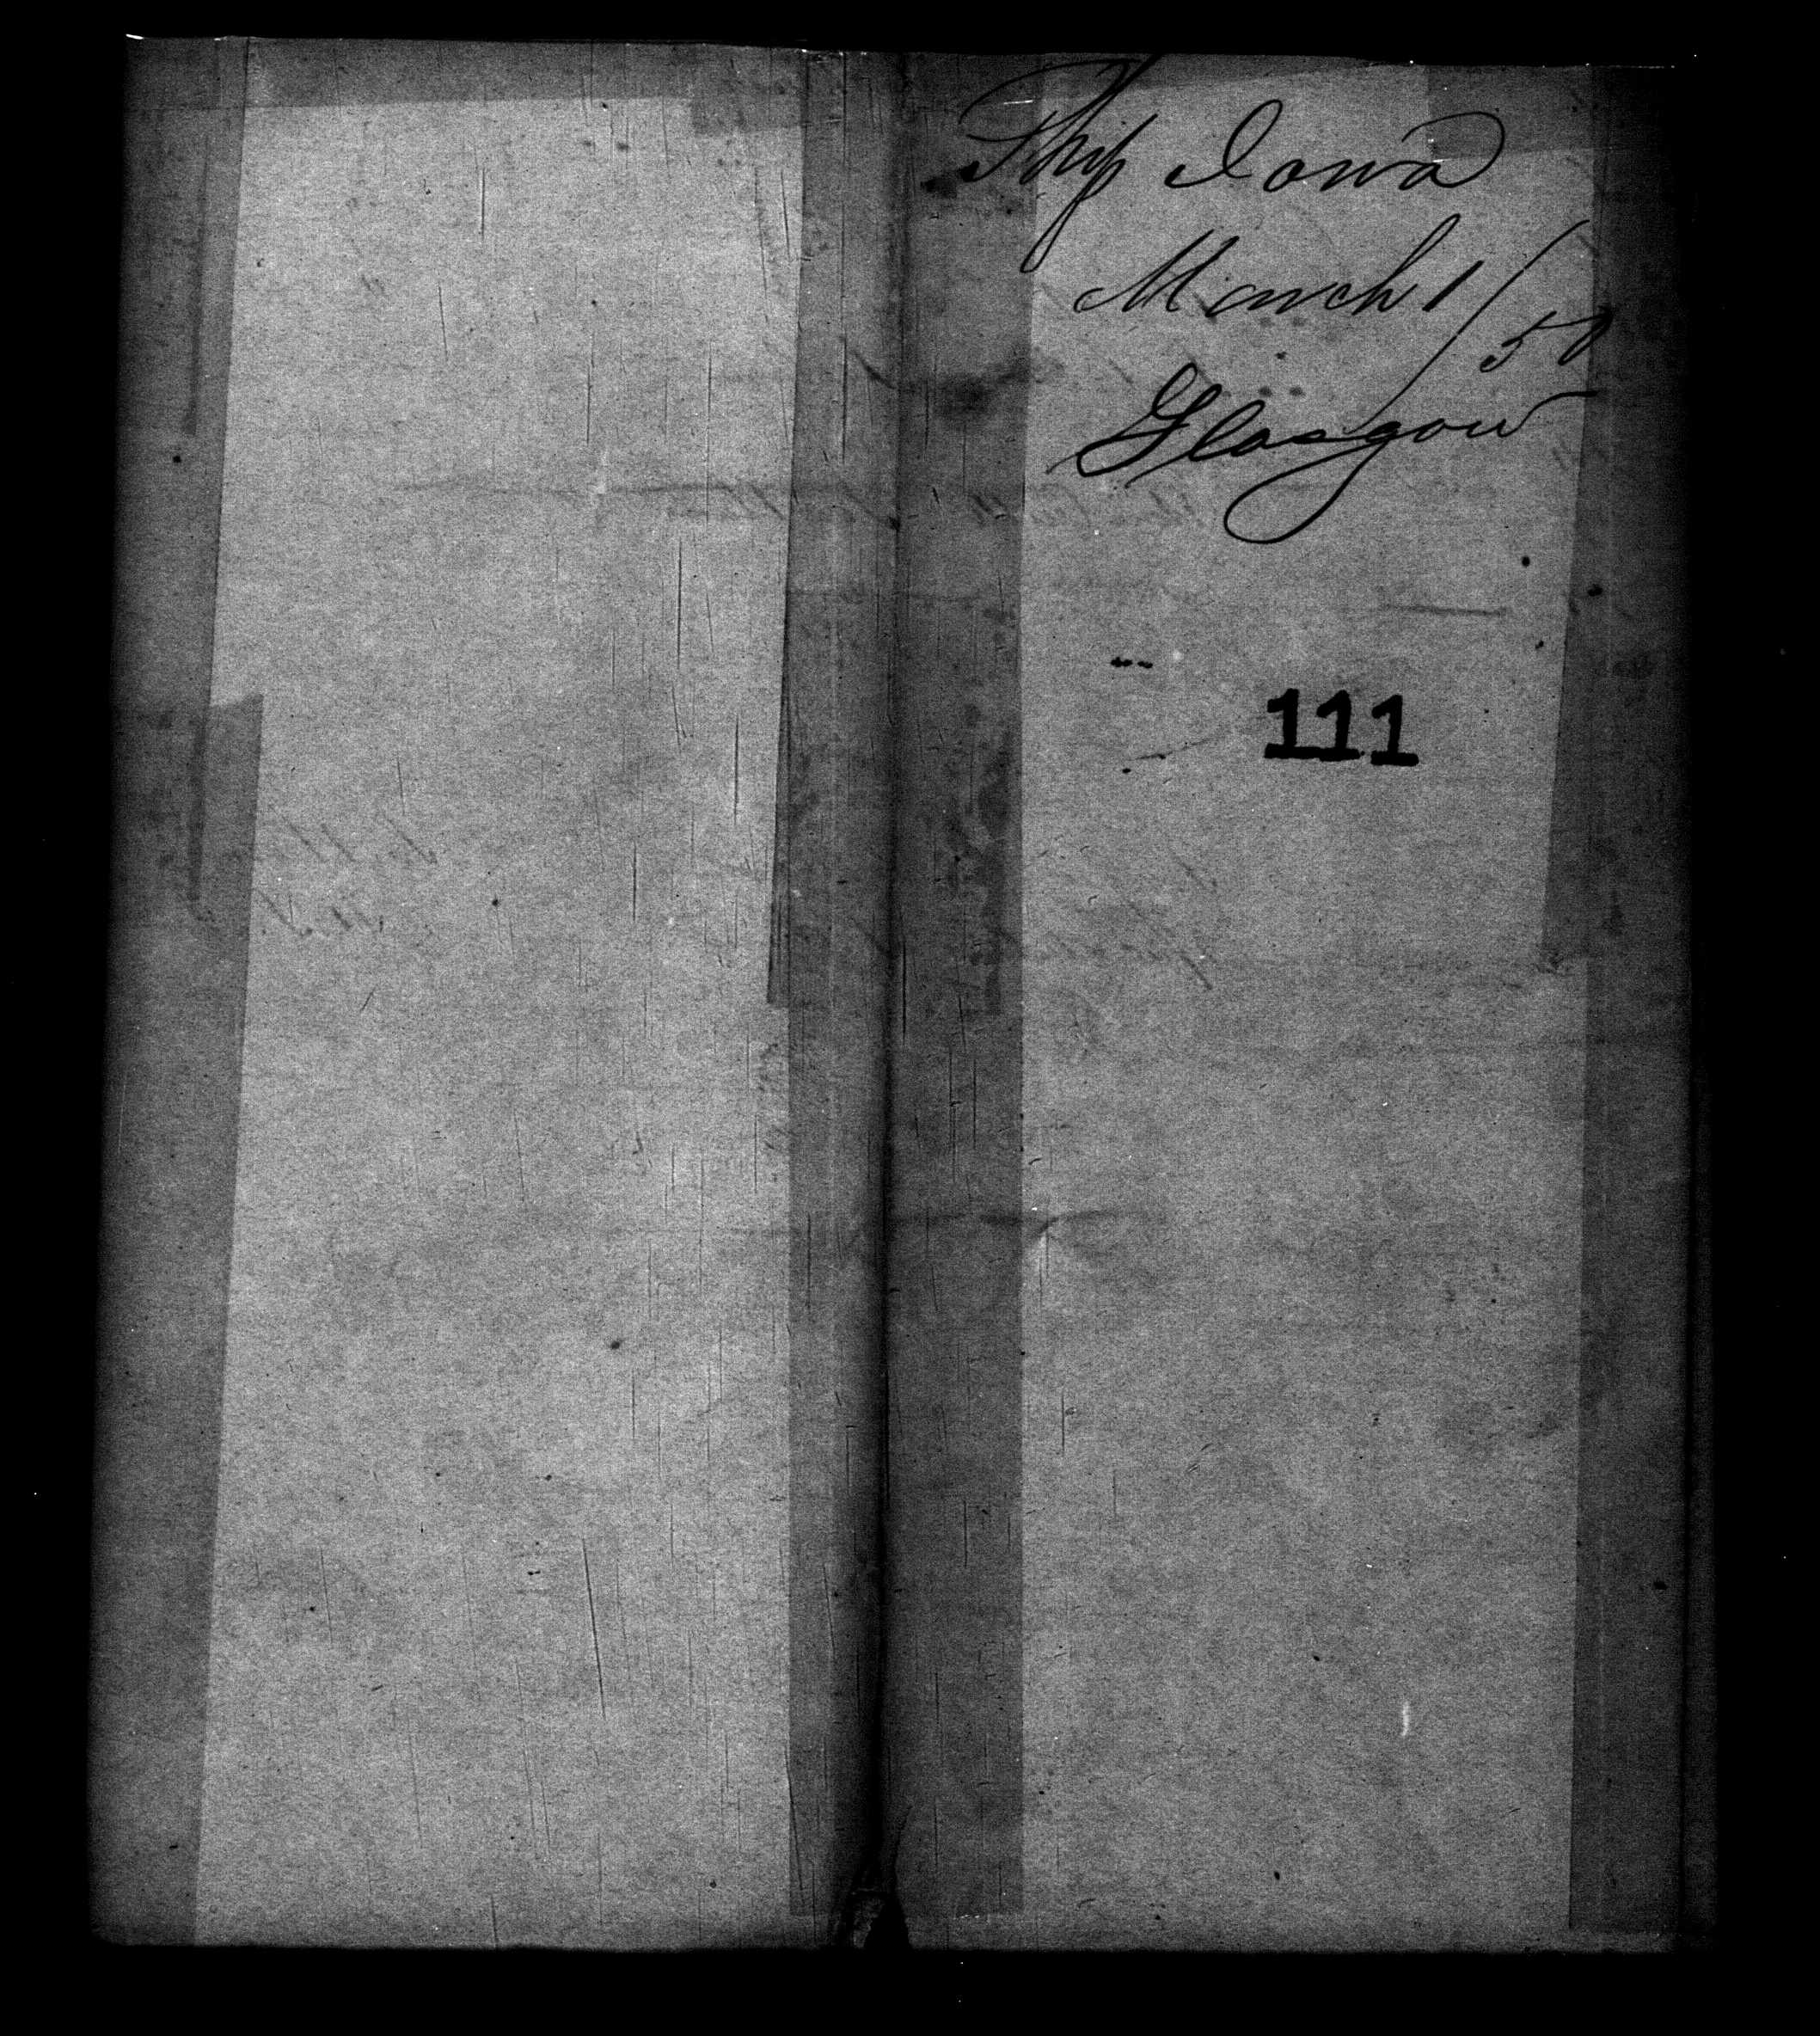 Ship Iowa
March 1/50
Glasgow
111